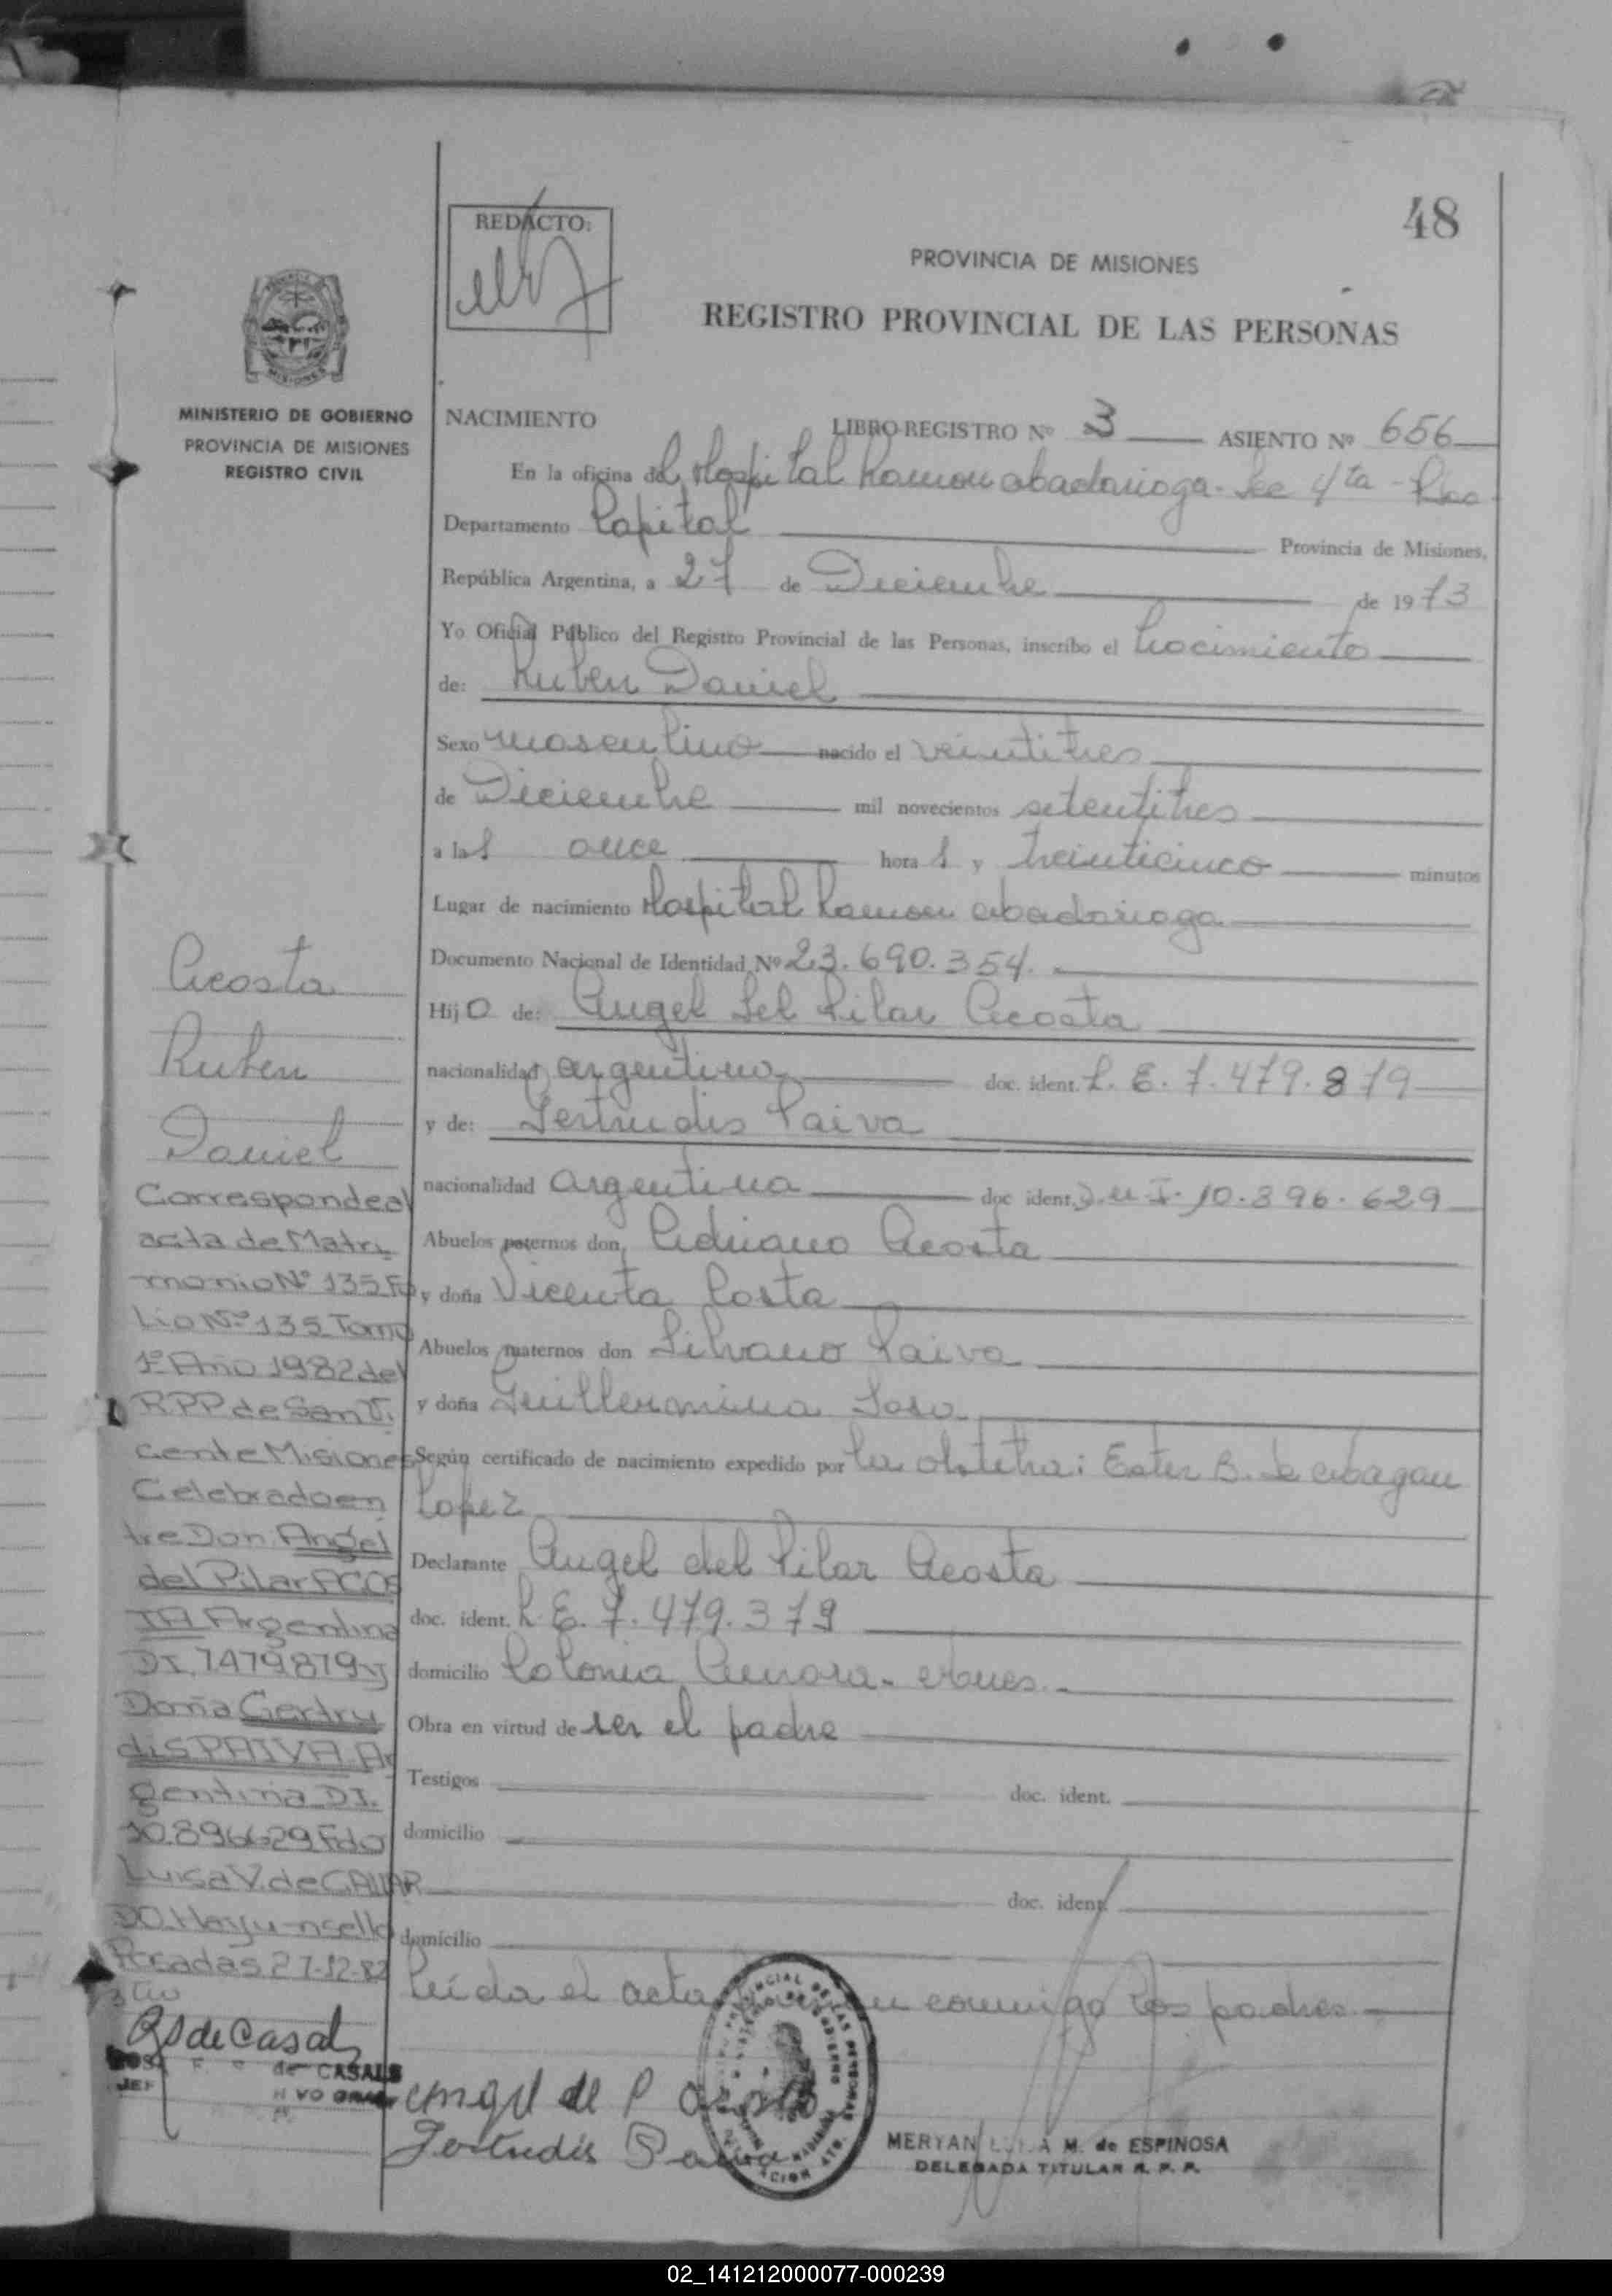 48
REDACTO:
PROVINCIA DE MISIONES
REGISTRO PROVINCIAL DE LAS PERSONAS
MINISTERIO DE GOBIERNO
PROVINCIA DE MISIONES
REGISTRO CIVIL
NACIMIENTO LIBRO-REGISTRO Nº 3 ASIENTO Nº 656
En la oficina del Hospital Ramon abadarioga - Sec 4ta -
Departamento Capital Provincia de Misiones,
República Argentina, a 27 de Diciembre de 1973
Yo Oficial Público del Registro Provincial de las Personas, inscribo el nacimiento
de: Ruben Daniel
Sexo masculino nacido el veintitres
de Diciembre mil novecientos setentitres
a las once horas y treinticinco minutos
Lugar de nacimiento Hospital Ramon abadarioga
Documento Nacional de Identidad Nº 23.690.354.
Hijo de: Angel del Pilar Acosta
nacionalidad argentino doc. ident. L. E. 7.479.879
y de: Gertrudis Paiva
nacionalidad argentina doc ident. D.N.I. 10.896.629
Abuelos paternos don Adriano Acosta
y doña Vicenta Costa
Abuelos maternos don Silvano Paiva
y doña Guillermina Soso
Según certificado de nacimiento expedido por la obstetra: Ester B. de
Lopez
Declarante Angel del Pilar Acosta
doc. ident. L. E. 7.479.379
domicilio Colonia Aurora -
Obra en virtud de ser el padre
Testigos doc. ident.
domicilio
doc. ident.
domicilio
Leída el acta conmigo los padres
Acosta
Ruben
Daniel
Corresponde al
acta de Matri
monio Nº 135 Fo
Lio Nº 135 Tomo
1º Año 1982 del
RPP de San Vi
cente Misiones
Celebrado en
tre Don Angel
del Pilar ACOS
TA Argentina
DI. 7479879 y
Doña Gertru
dis PAIVA Ar
gentina DI.
10.896629 Fdo
Luisa V. de GALLAR
DO. Hay un sello
Posadas 27-12-82
RS de Casals
de CASALS
JEF
Angel del P Acosta
Gertrudis Paiva
MERYAN LUISA M. de ESPINOSA
DELEGADA TITULAR R. P. P.
02_141212000077-000239